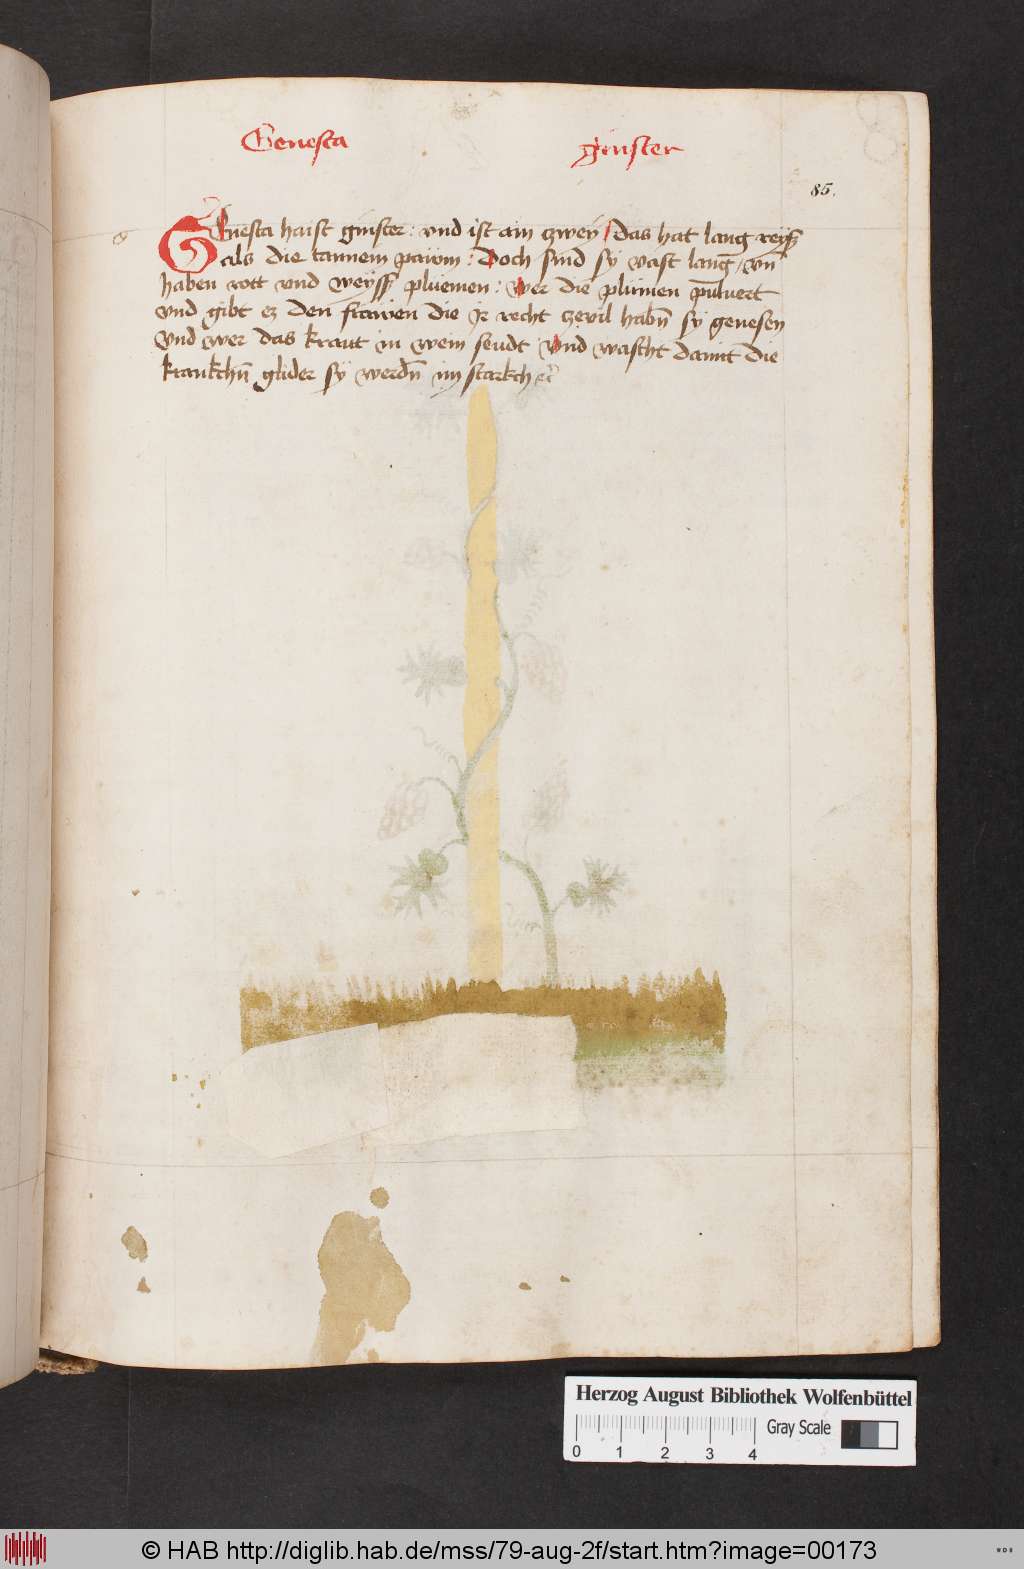 Genesta ginster
85.
Genesta haist ginster : vnd ist ain zwey / das hat lang reyss
als die tannem pawm : Doch sind sy vast lang / vn̄
haben rott vnd weyss pluemen : wer die plumen puluert
vnd gibt ez den frawen die Ir recht zevil habn̄ sy genesen
Vnd wer das kraut in wein seudt Vnd wascht damit die
krankchn̄ glider sy werdn̄ im starkch
Herzog August Bibliothek Wolfenbüttel
Gray Scale
0 1 2 3 4
© HAB http://diglib.hab.de/mss/79-aug-2f/start.htm?image=00173